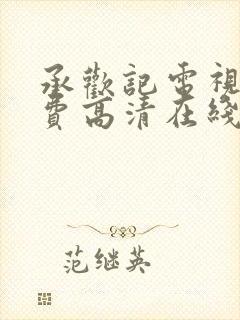 承歡記電視
費高清在綫
范继英